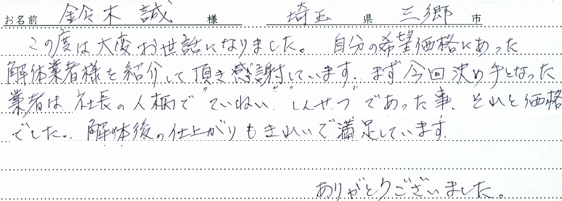 お名前 鈴木 誠 様 埼玉 県 三郷 市
この度は大変お世話になりました。 自分の希望価格にあった
解体業者様を紹介して頂き感謝しています。まず今回決め手となった
業者は 社長の人柄で"ていねい""しんせつ"であった事、それと価格
でした。解体後の仕上がりもきれいで満足しています。
ありがとうございました。